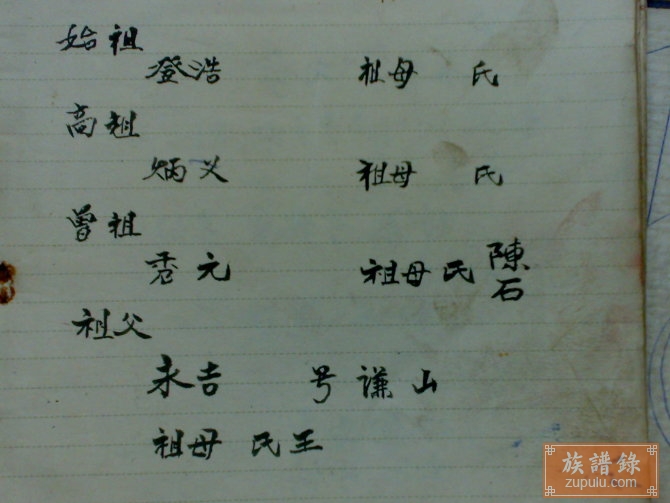 始祖
登浩 祖母 氏
高祖
炳义 祖母 氏
曾祖
秀元 祖母氏 陳
石
祖父
永吉 号谦山
祖母 氏王
族譜錄
zupulu.com